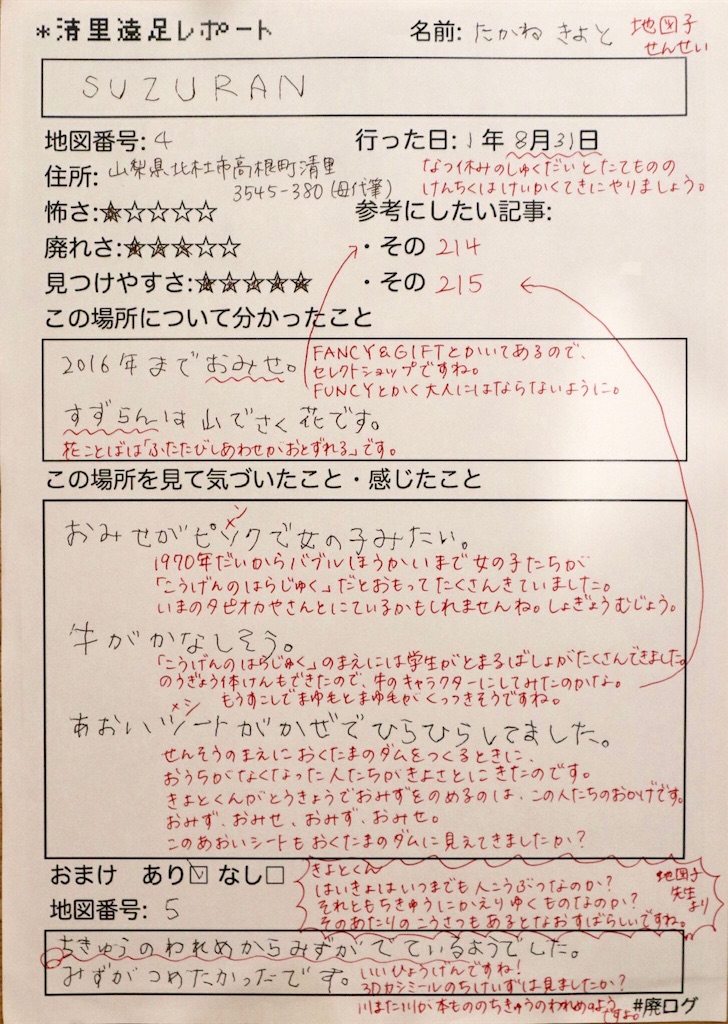 *清里遠足レポート
名前: たかね きよと
地図子
せんせい
SUZURAN
地図番号: 4
行った日: 1年 8月31日
なつ休みのしゅくだいとたてものの
けんちくはけいかくてきにやりましょう。
住所: 山梨県北杜市高根町清里
3545-380 (母代筆)
怖さ:★☆☆☆☆
参考にしたい記事:
廃れさ:★★★☆☆
・その 214
見つけやすさ:★★★★★
・その 215
この場所について分かったこと
2016年までおみせ。
FANCY&GIFTとかいてあるので、
セレクトショップですね。
FUNCYとかく大人にはならないように。
すずらんは山でさく花です。
花ことばは「ふたたびしあわせがおとずれる」です。
この場所を見て気づいたこと・感じたこと
おみせがピソクで女の子みたい。
ン
1970年だいからバブルほうかいまで女の子たちが
「こうげんのはらじゅく」だとおもってたくさんきていました。
いまのタピオカやさんとにているかもしれませんね。しょぎょうむじょう。
牛がかなしそう。
「こうげんのはらじゅく」のまえには学生がとまるばしょがたくさんできました。
のうぎょう体けんもできたので、牛のキャラクターにしてみたのかな。
もうすこしでまゆ毛とまゆ毛がくっつきそうですね。
あおいツートがかぜでひらひらしてました。
シ
せんそうのまえにおくたまのダムをつくるときに、
おうちがなくなった人たちがきよさとにきたのです。
きよとくんがとうきょうでおみずをのめるのは、この人たちのおかげです。
おみず、おみせ、おみず、おみせ。
このあおいシートもおくたまのダムに見えてきましたか?
おまけ あり☑ なし☐
地図番号: 5
きよとくん
はいきょはいつまでも人こうぶつなのか?
それともちきゅうにかえりゆくものなのか?
そのあたりのこうさつもあるとなおすばらしいですね。
地図子
先生
より
ちきゅうのわれめからみずがでているようでした。
みずがつめたかったです。
いいひょうげんですね!
3Dカシミールのちけいずは見ましたか?
川また川が本もののちきゅうのわれめのよう
ですよ。
#廃ログ